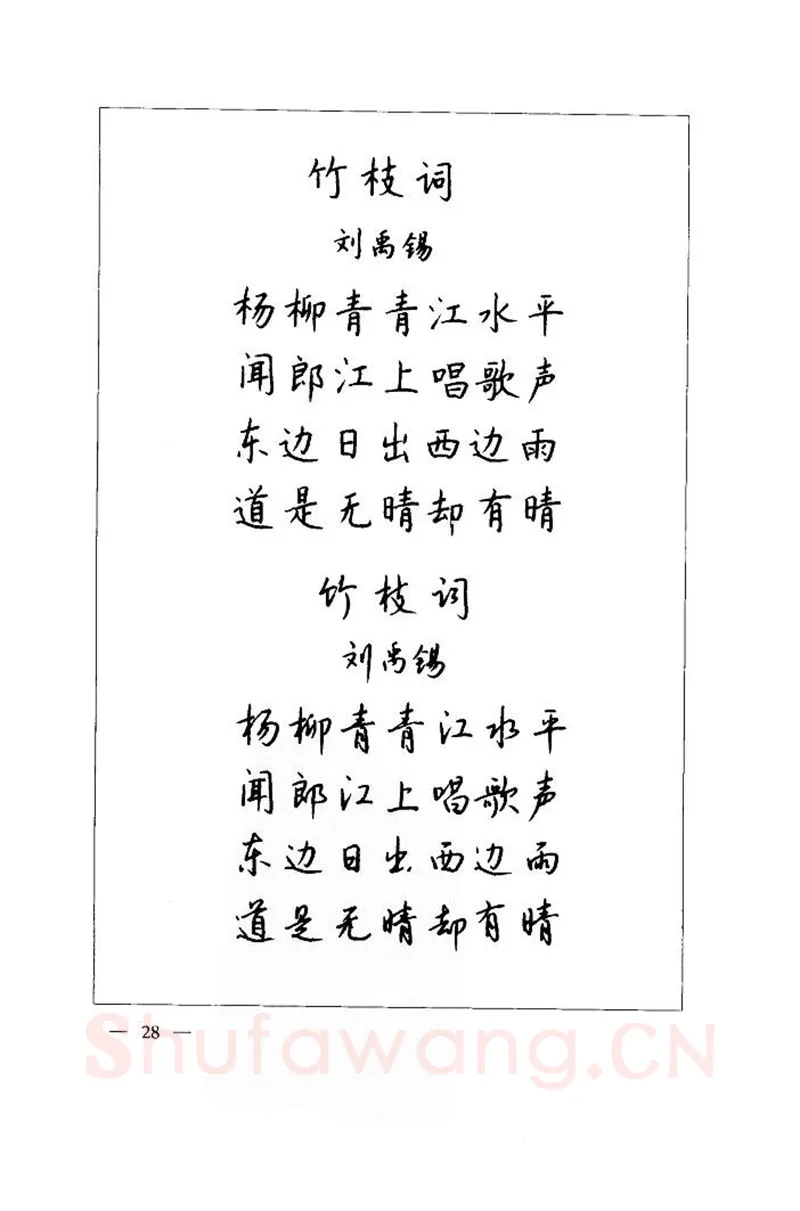 竹枝词
刘禹锡
杨柳青青江水平
闻郎江上唱歌声
东边日出西边雨
道是无晴却有晴
竹枝词
刘禹锡
杨柳青青江水平
闻郎江上唱歌声
东边日出西边雨
道是无晴却有晴
— 28 —
Shufawang.CN